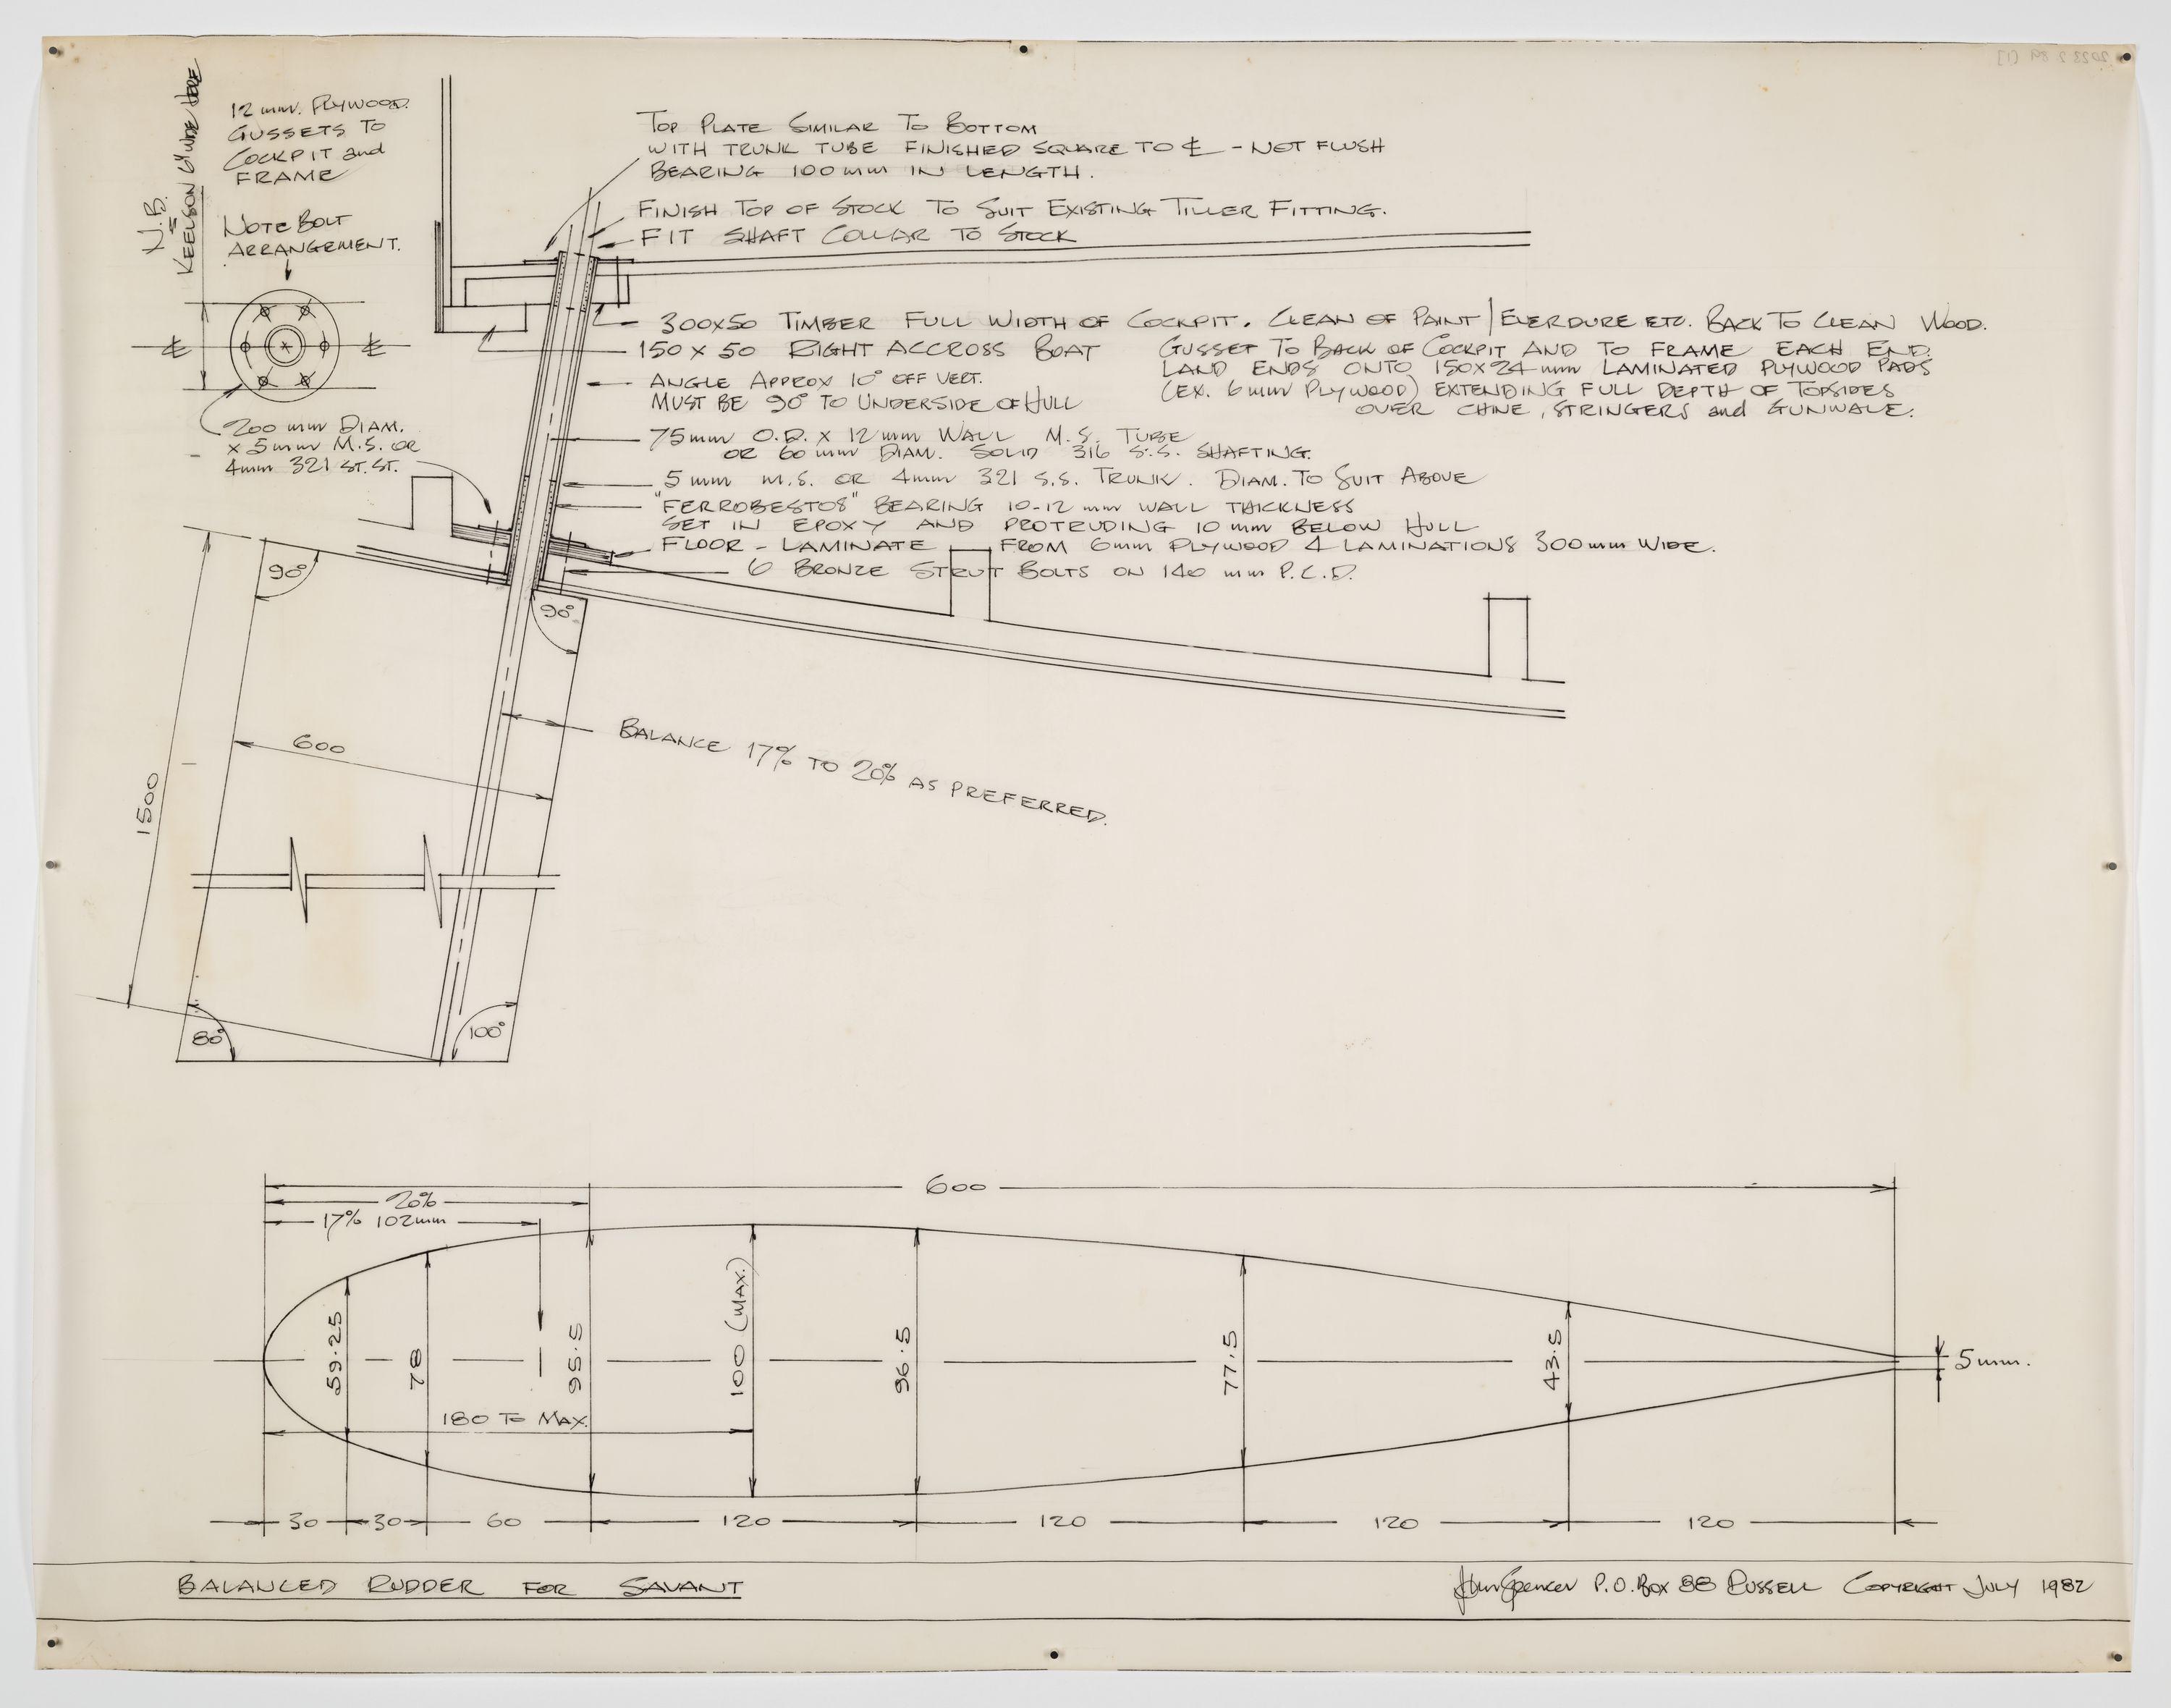 N.B.
KEELSON GUIDE HERE
12 mm. PLYWOOD.
GUSSETS TO
COCKPIT and
FRAME
NOTE BOLT
ARRANGEMENT.
℄
℄
200 mm DIAM.
x 5mm M.S. OR
4mm 321 ST. ST.
TOP PLATE SIMILAR TO BOTTOM
WITH TRUNK TUBE FINISHED SQUARE TO ℄ - NOT FLUSH
BEARING 100mm IN LENGTH.
FINISH TOP OF STOCK TO SUIT EXISTING TILLER FITTING.
FIT SHAFT COLLAR TO STOCK
300x50 TIMBER FULL WIDTH OF COCKPIT. CLEAN OF PAINT/EVERDURE ETC. BACK TO CLEAN WOOD.
GUSSET TO BACK OF COCKPIT AND TO FRAME EACH END.
LAND ENDS ONTO 150x24 mm LAMINATED PLYWOOD PADS
(EX. 6mm PLYWOOD) EXTENDING FULL DEPTH OF TOPSIDES
OVER CHINE, STRINGERS and GUNWALE.
150 x 50 RIGHT ACCROSS BOAT
ANGLE APPROX 10° OFF VERT.
MUST BE 90° TO UNDERSIDE OF HULL
75mm O.D. x 12mm WALL M.S. TUBE
OR 60mm DIAM. SOLID 316 S.S. SHAFTING.
5 mm M.S. OR 4mm 321 S.S. TRUNK. DIAM. TO SUIT ABOVE
"FERROBESTOS" BEARING 10-12 mm WALL THICKNESS
SET IN EPOXY AND PROTRUDING 10 mm BELOW HULL
FLOOR - LAMINATE FROM 6mm PLYWOOD 4 LAMINATIONS 300mm WIDE.
6 BRONZE STRUT BOLTS ON 140 mm P.C.D.
90°
90°
600
1500
BALANCE 17% TO 20% AS PREFERRED.
80°
100°
600
20%
17% 102mm
59.25
78
95.5
100 (MAX.)
96.5
77.5
43.5
5mm.
180 TO MAX.
30 30 60 120 120 120 120
BALANCED RUDDER FOR SAVANT
John Spencer P.O. BOX 88 RUSSELL COPYRIGHT JULY 1982